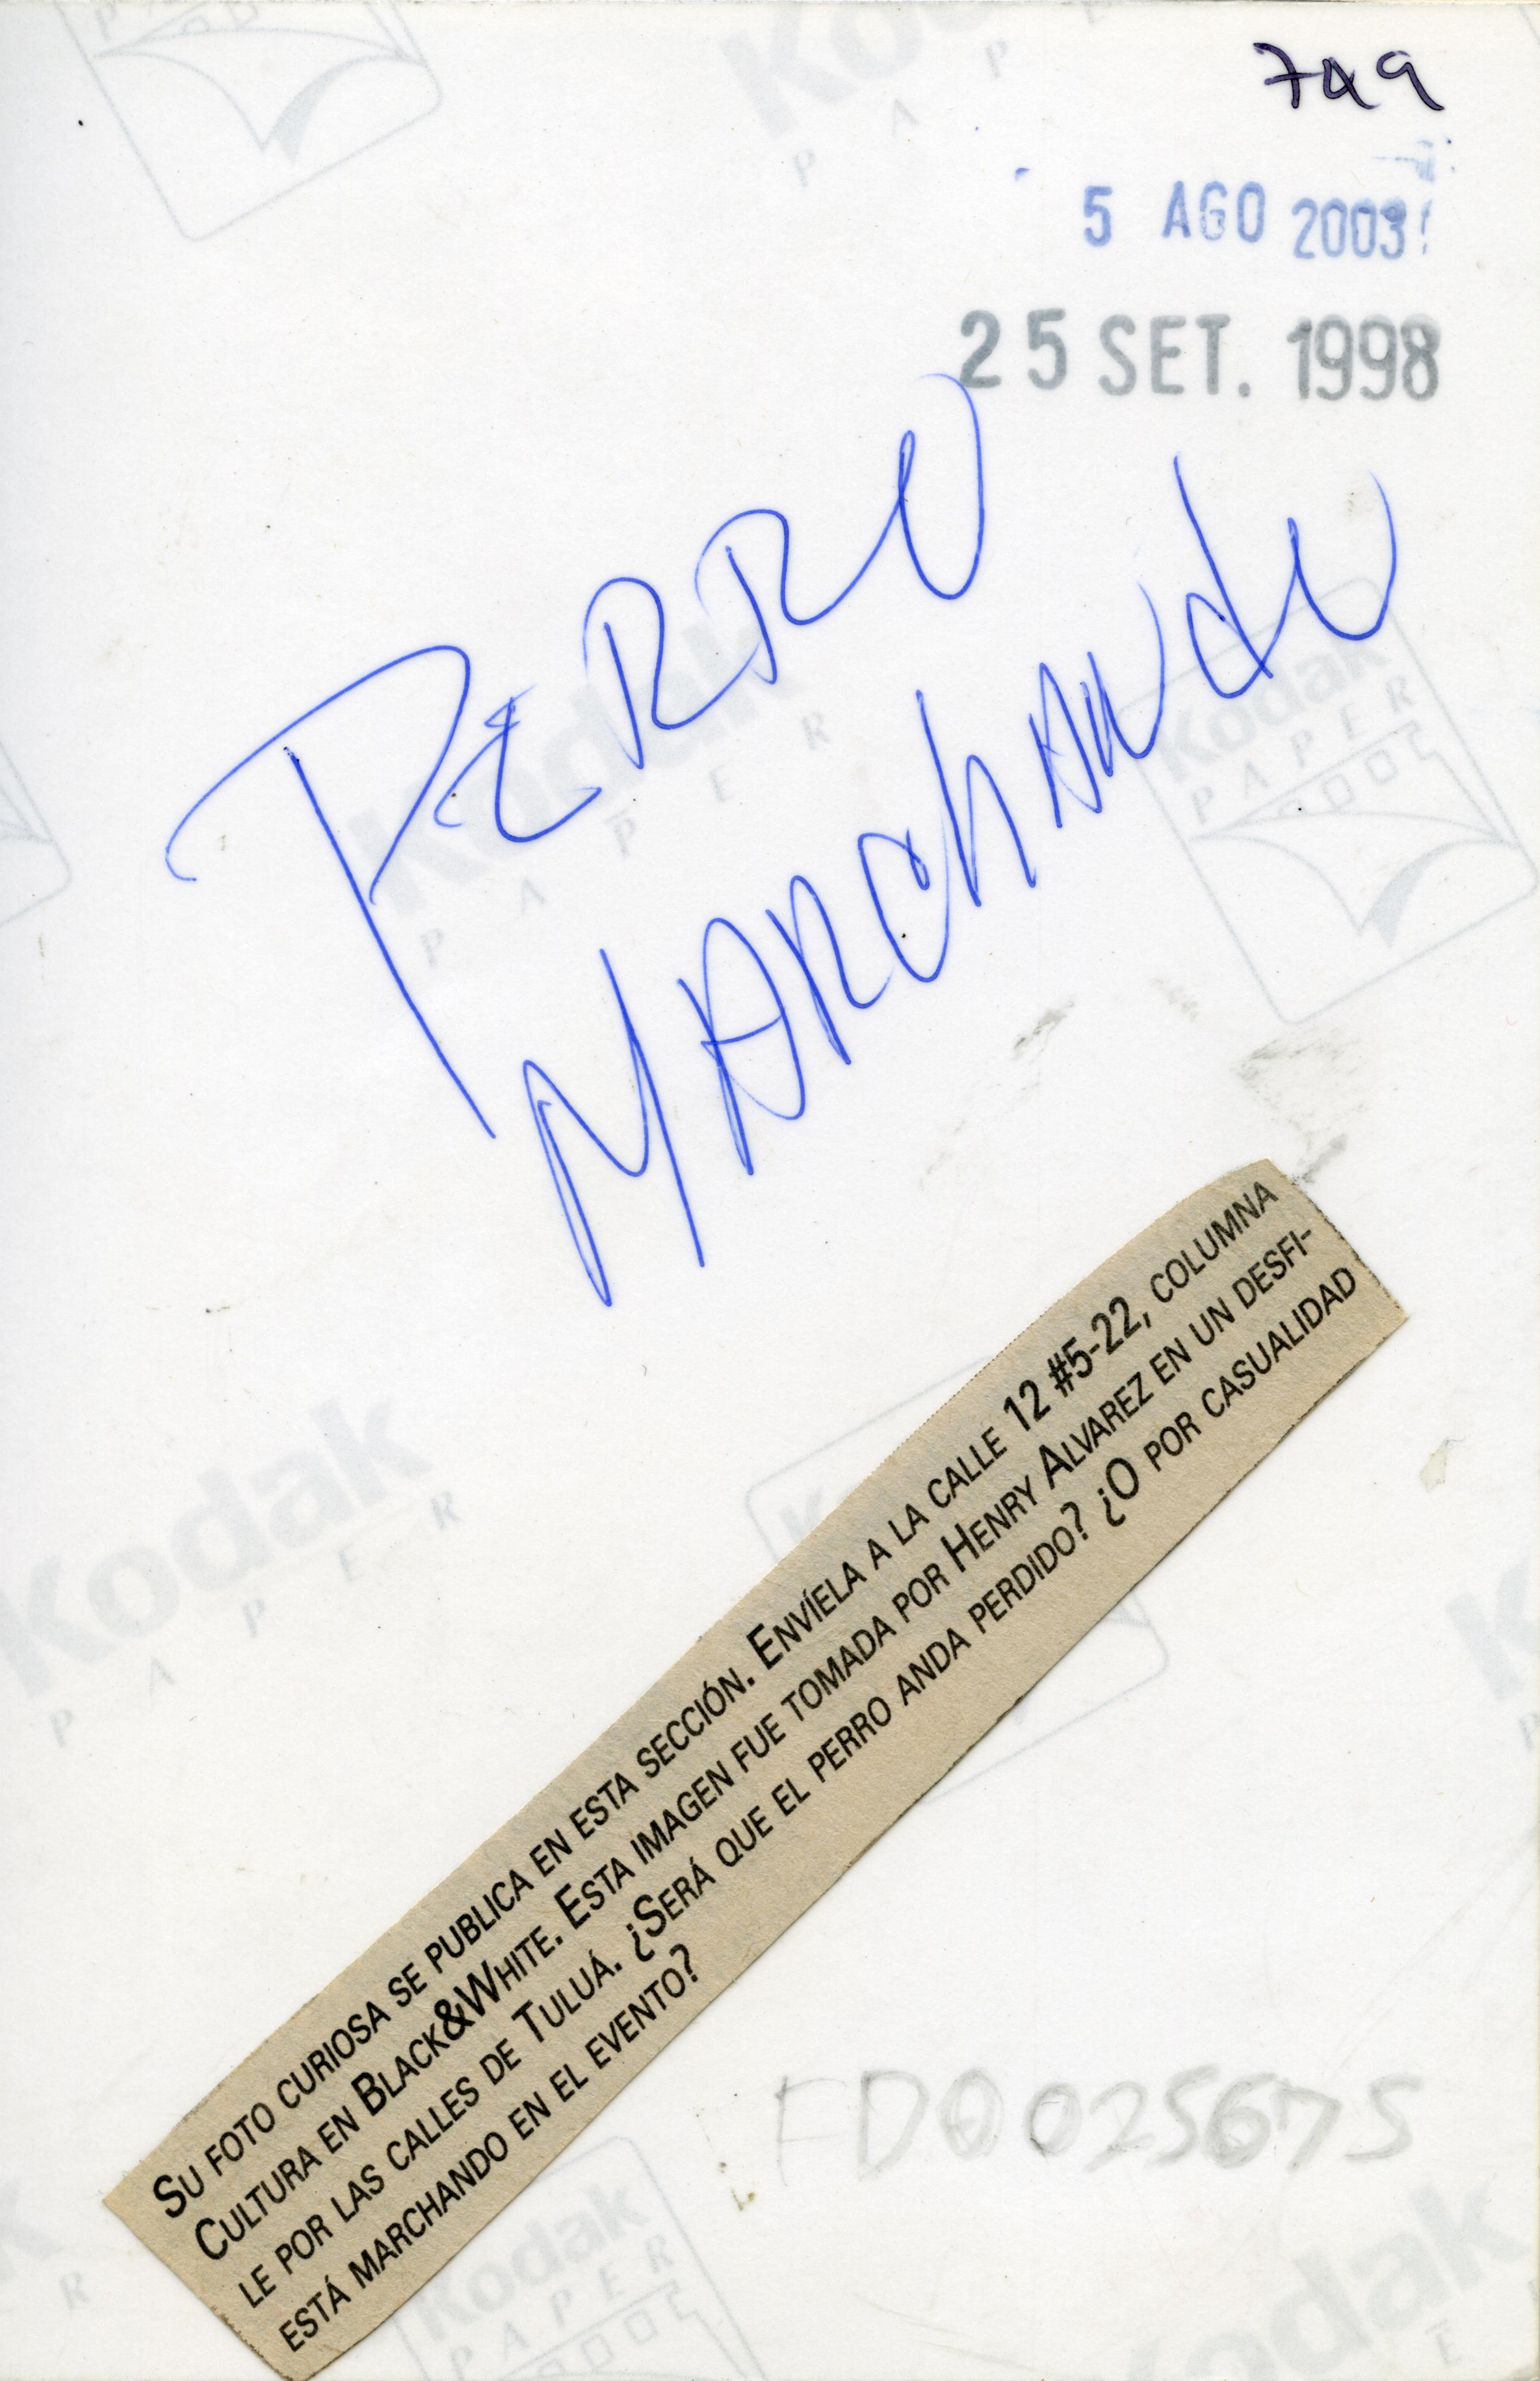 749
5 AGO 2003
25 SET. 1998
PERRO
MARCHANDO
SU FOTO CURIOSA SE PUBLICA EN ESTA SECCIÓN. ENVÍELA A LA CALLE 12 #5-22, COLUMNA
CULTURA EN BLACK&WHITE. ESTA IMAGEN FUE TOMADA POR HENRY ALVAREZ EN UN DESFI-
LE POR LAS CALLES DE TULUÁ. ¿SERÁ QUE EL PERRO ANDA PERDIDO? ¿O POR CASUALIDAD
ESTÁ MARCHANDO EN EL EVENTO?
FD0025675
Kodak
PAPER
Kodak
PAPER
Kodak
PAPER
Kodak
PAPER
Kodak